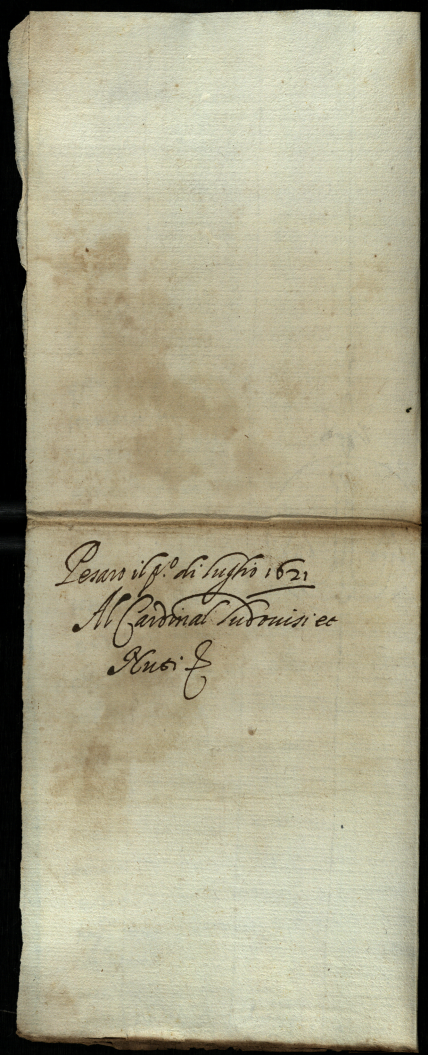 Pesaro il p.º di luglio 1621
Al Cardinal Ludovisi et
Nuti